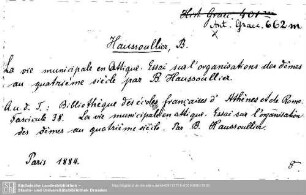 Hist. Graec. 401 m
Ant. Graec. 662 m
Haussoullier, B.
La vie municipale en Attique. Essai sur l'organisation des dèmes
au quatrième siècle par B Haussoullier.
A. u. d. T.: Bibliothèque des écoles françaises d'Athènes et de Rome.
Fascicule 38. La vie municipale en Attique. Essai sur l'organisation
des dèmes au quatrième siècle. Par B. Haussoullier.
Paris 1884.